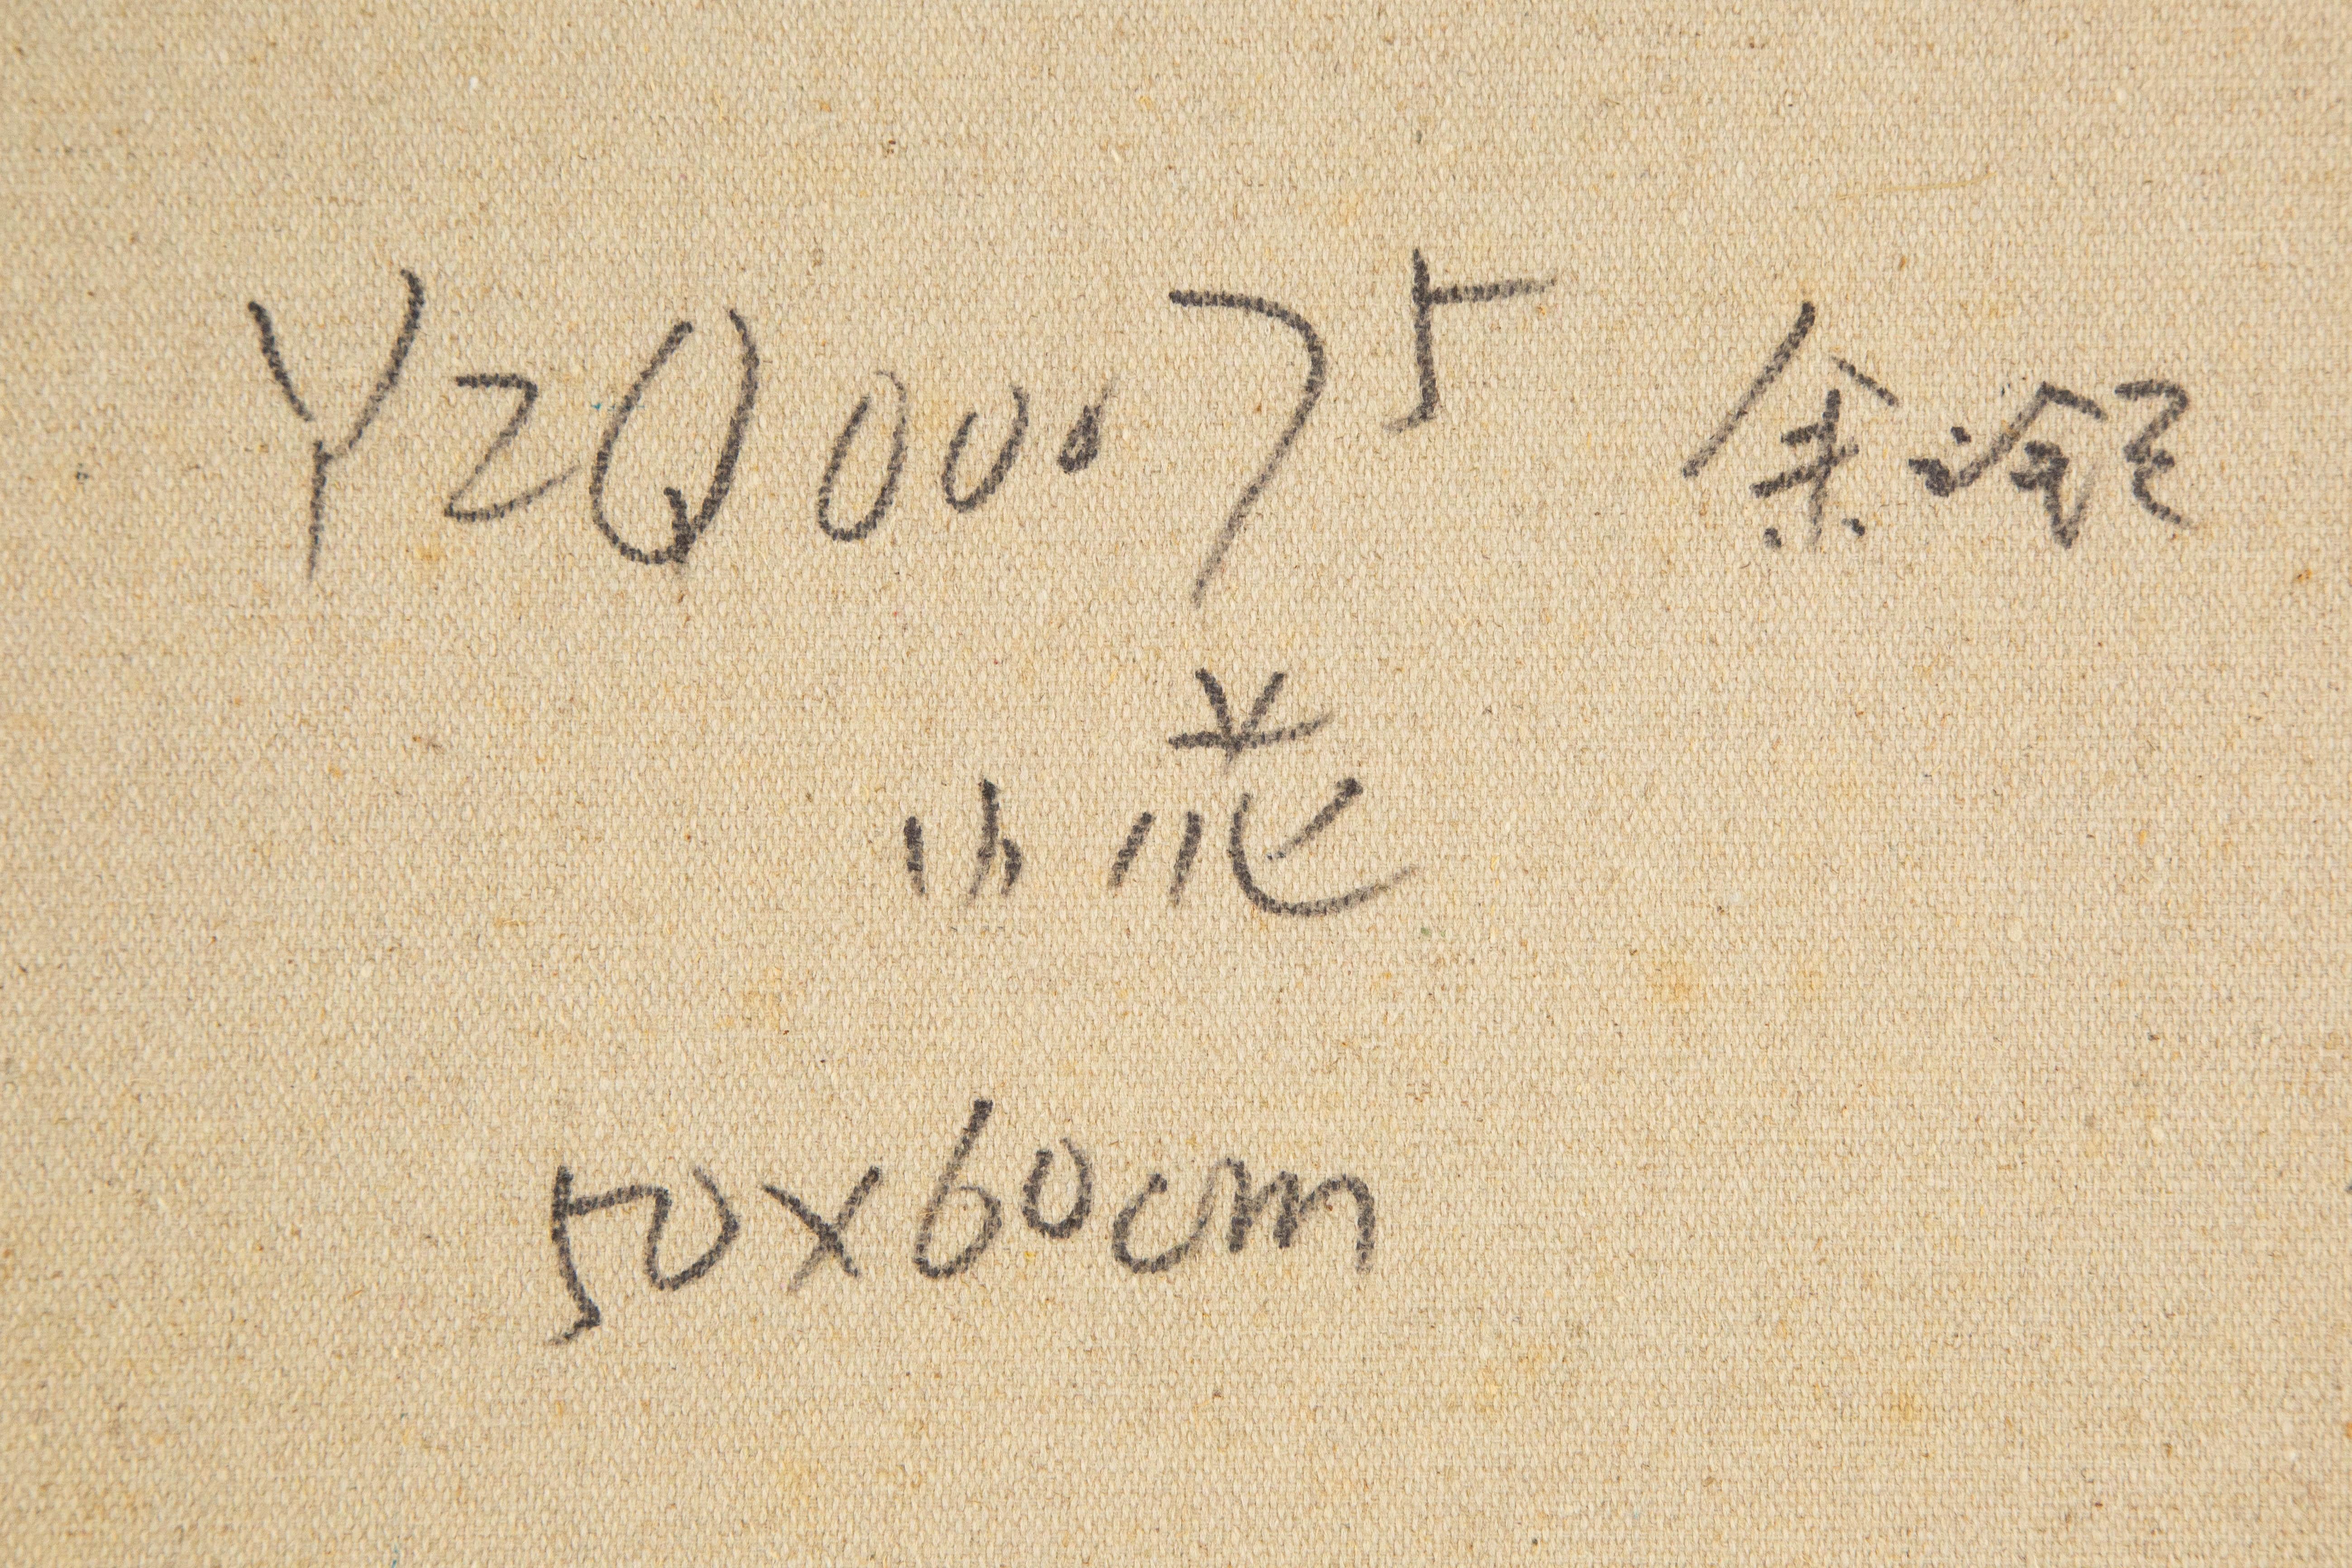 YZQ00075 余
小花
50x60cm